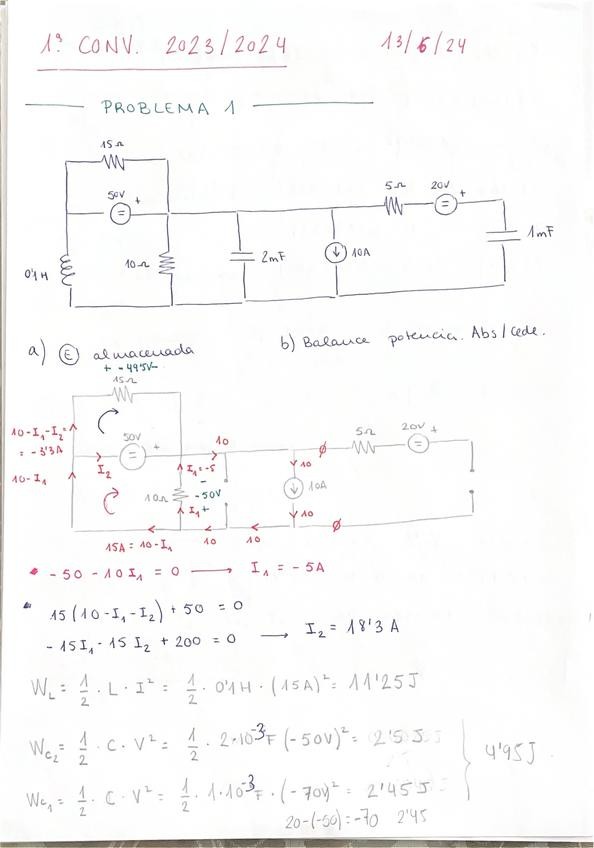 1ª CONV. 2023/2024 13/6/24
PROBLEMA 1
15Ω
50V +
5Ω 20V +
0'1H 10Ω 2mF 10A 1mF
a) E almacenada b) Balance potencia. Abs/cede.
+ -49'5V -
15Ω
10-I₁-I₂=
= -3'3A
10-I₁
50V +
I₂
10
I₁=-5
-
-50V
+
10Ω
I₁
10
10A
10
∅ 5Ω 20V +
∅
15A = 10-I₁ 10 10
• -50 - 10I₁ = 0 → I₁ = -5A
15(10-I₁-I₂) + 50 = 0
-15I₁ - 15I₂ + 200 = 0 → I₂ = 18'3 A
W_L = 1/2 · L · I² = 1/2 · 0'1H · (15A)² = 11'25J
W_C₂ = 1/2 · C · V² = 1/2 · 2·10⁻³F (-50V)² = 2'5 J
4'95J.
W_C₁ = 1/2 · C · V² = 1/2 · 1·10⁻³F · (-70V)² = 2'45J
20-(-50)=-70 2'45